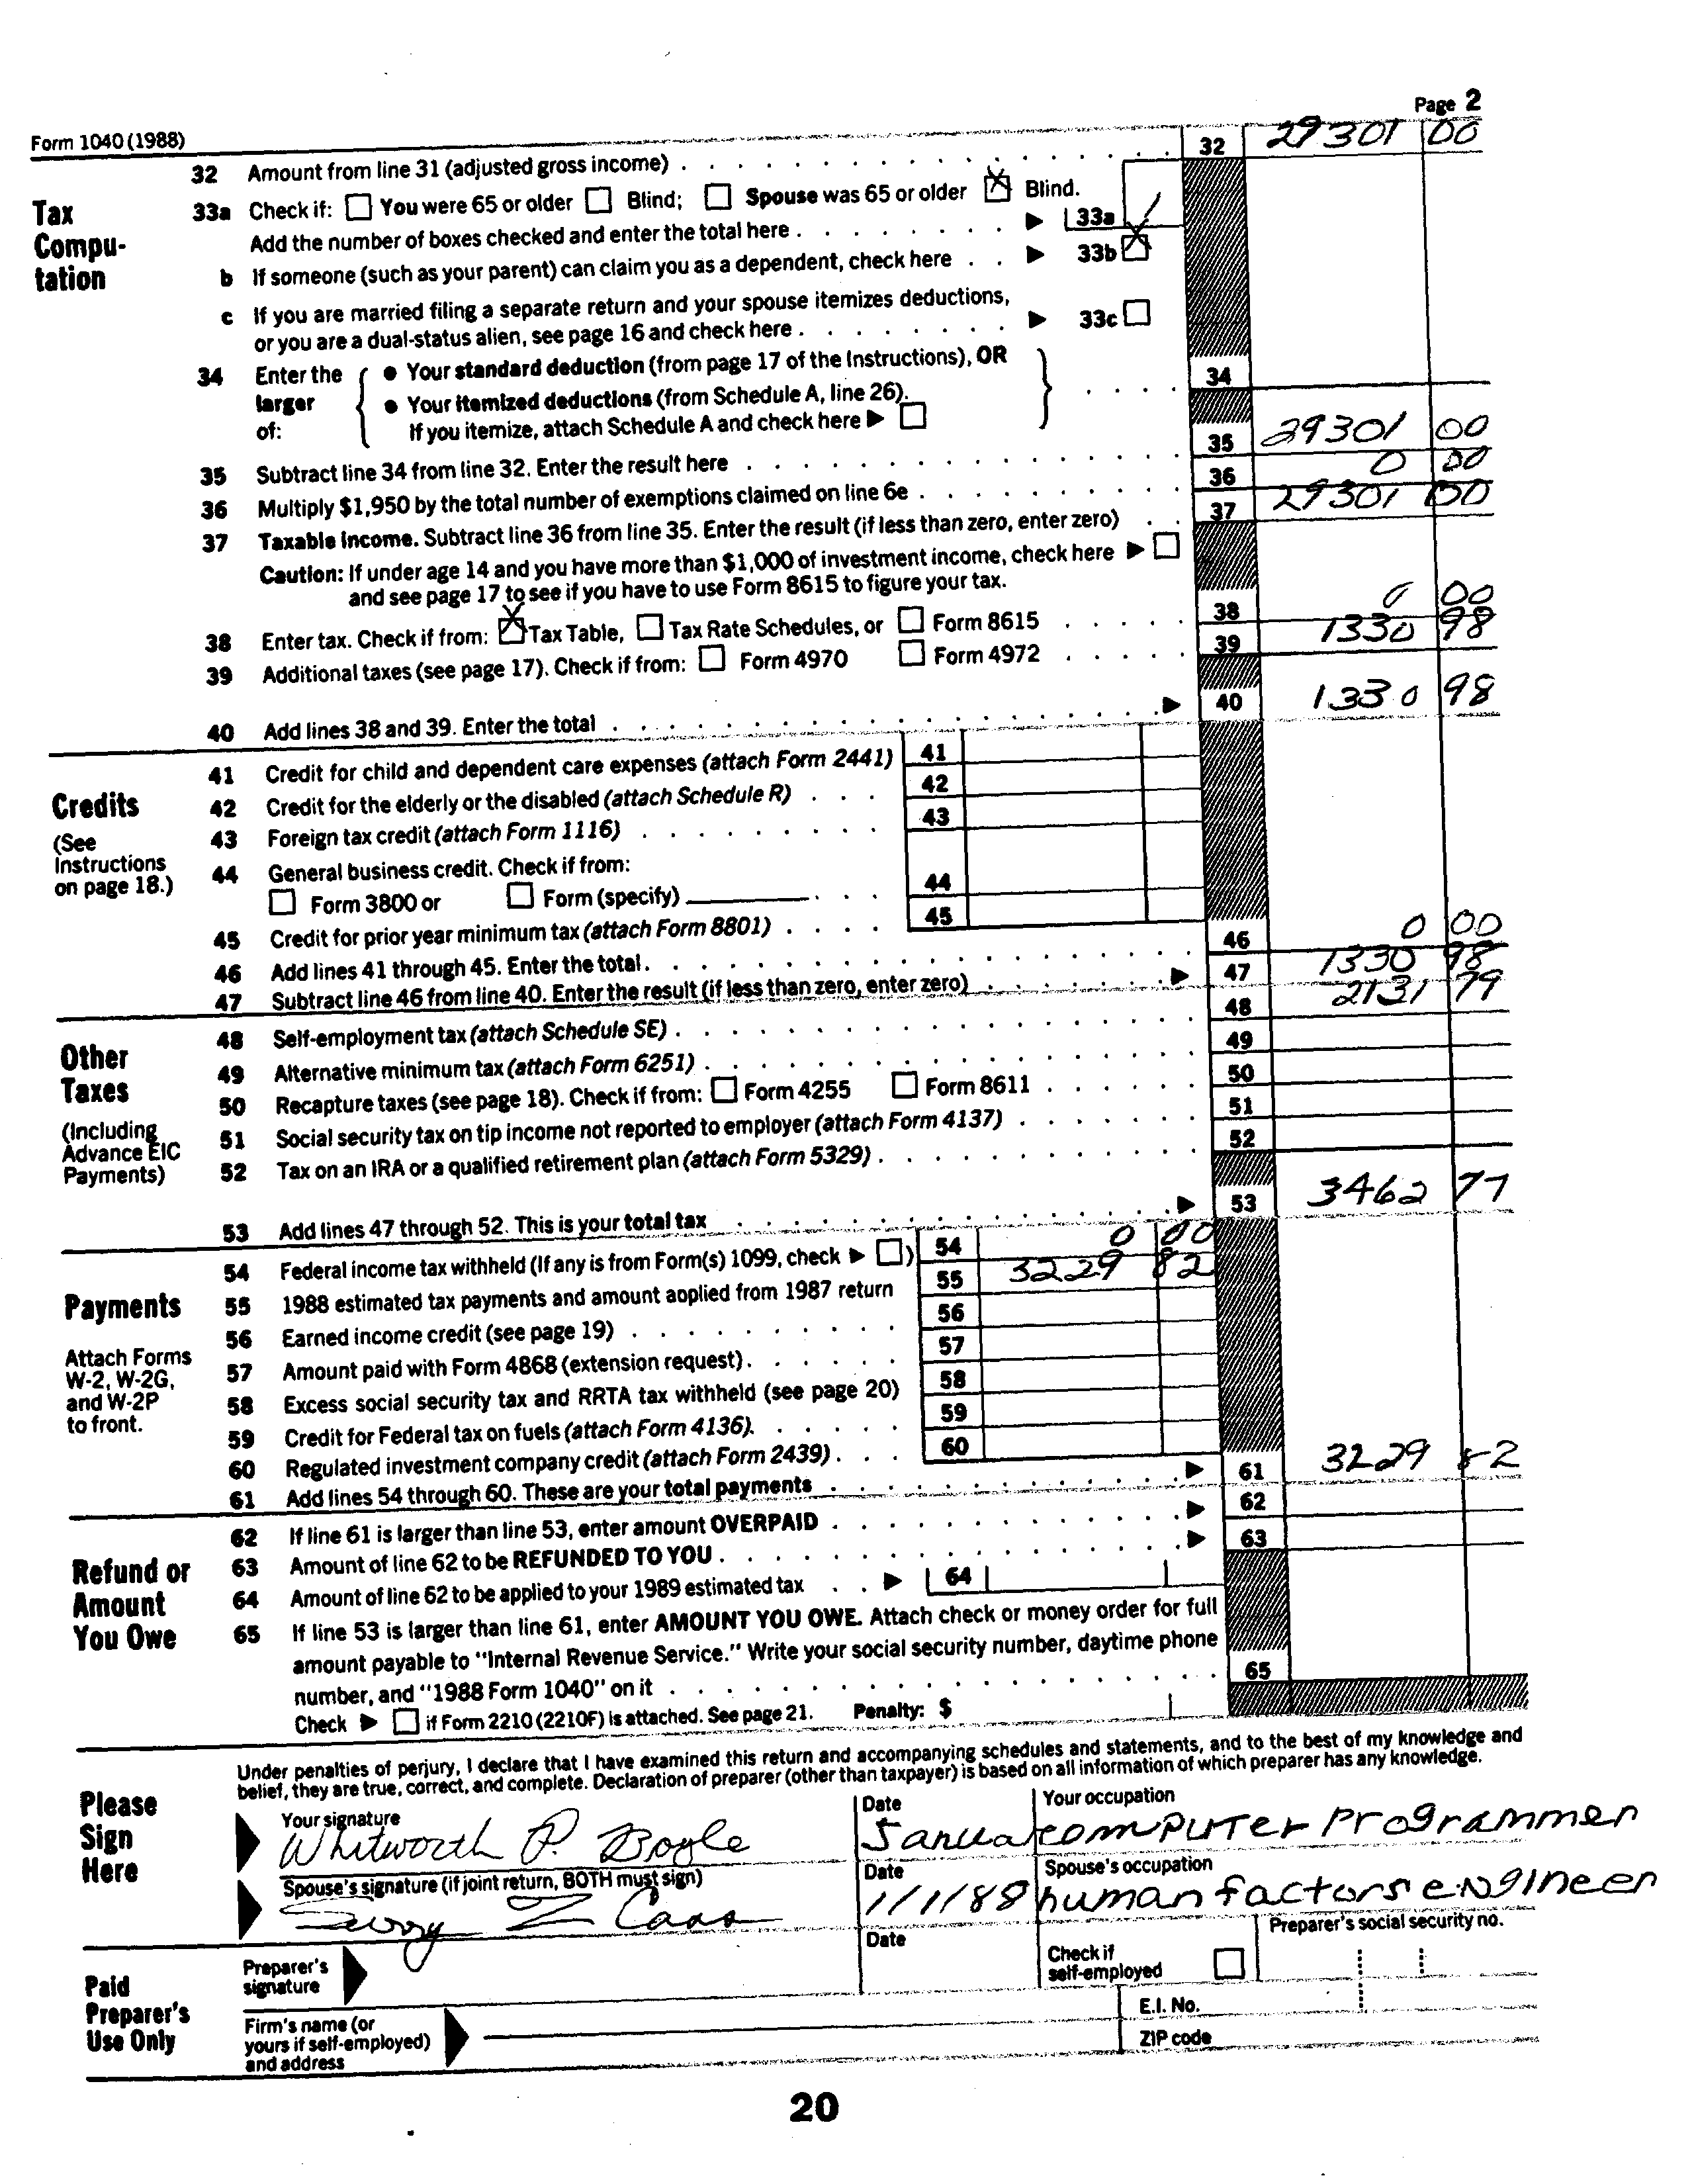 Page 2
Form 1040 (1988)
32 Amount from line 31 (adjusted gross income) 32 29301 00
Tax Compu-tation
33a Check if: You were 65 or older Blind; Spouse was 65 or older X Blind.
Add the number of boxes checked and enter the total here 33a 1
b If someone (such as your parent) can claim you as a dependent, check here 33b X
c If you are married filing a separate return and your spouse itemizes deductions,
or you are a dual-status alien, see page 16 and check here 33c
34 Enter the larger of:
• Your standard deduction (from page 17 of the Instructions), OR
• Your itemized deductions (from Schedule A, line 26).
If you itemize, attach Schedule A and check here
34
35 Subtract line 34 from line 32. Enter the result here 35 29301 00
36 Multiply $1,950 by the total number of exemptions claimed on line 6e 36 0 00
37 Taxable income. Subtract line 36 from line 35. Enter the result (if less than zero, enter zero) 37 29301 00
Caution: If under age 14 and you have more than $1,000 of investment income, check here
and see page 17 to see if you have to use Form 8615 to figure your tax.
38 Enter tax. Check if from: X Tax Table, Tax Rate Schedules, or Form 8615 38 0 00
39 Additional taxes (see page 17). Check if from: Form 4970 Form 4972 39 1330 98
40 Add lines 38 and 39. Enter the total 40 1330 98
Credits
(See Instructions on page 18.)
41 Credit for child and dependent care expenses (attach Form 2441) 41
42 Credit for the elderly or the disabled (attach Schedule R) 42
43 Foreign tax credit (attach Form 1116) 43
44 General business credit. Check if from:
Form 3800 or Form (specify) 44
45 Credit for prior year minimum tax (attach Form 8801) 45
46 Add lines 41 through 45. Enter the total. 46 0 00
47 Subtract line 46 from line 40. Enter the result (if less than zero, enter zero) 47 1330 98
Other Taxes
(Including Advance EIC Payments)
48 Self-employment tax (attach Schedule SE) 48 2131 79
49 Alternative minimum tax (attach Form 6251) 49
50 Recapture taxes (see page 18). Check if from: Form 4255 Form 8611 50
51 Social security tax on tip income not reported to employer (attach Form 4137) 51
52 Tax on an IRA or a qualified retirement plan (attach Form 5329) 52
53 Add lines 47 through 52. This is your total tax 53 3462 77
Payments
Attach Forms W-2, W-2G, and W-2P to front.
54 Federal income tax withheld (If any is from Form(s) 1099, check ) 54 0 00
55 1988 estimated tax payments and amount applied from 1987 return 55 3229 82
56 Earned income credit (see page 19) 56
57 Amount paid with Form 4868 (extension request) 57
58 Excess social security tax and RRTA tax withheld (see page 20) 58
59 Credit for Federal tax on fuels (attach Form 4136) 59
60 Regulated investment company credit (attach Form 2439) 60
61 Add lines 54 through 60. These are your total payments 61 3229 82
Refund or Amount You Owe
62 If line 61 is larger than line 53, enter amount OVERPAID 62
63 Amount of line 62 to be REFUNDED TO YOU 63
64 Amount of line 62 to be applied to your 1989 estimated tax 64
65 If line 53 is larger than line 61, enter AMOUNT YOU OWE. Attach check or money order for full
amount payable to "Internal Revenue Service." Write your social security number, daytime phone
number, and "1988 Form 1040" on it 65
Check if Form 2210 (2210F) is attached. See page 21. Penalty: $
Please Sign Here
Under penalties of perjury, I declare that I have examined this return and accompanying schedules and statements, and to the best of my knowledge and
belief, they are true, correct, and complete. Declaration of preparer (other than taxpayer) is based on all information of which preparer has any knowledge.
Your signature Date Your occupation
Whitworth P. Boyle computer programmer
Spouse's signature (if joint return, BOTH must sign) Date Spouse's occupation
Z 1/1/88 human factors engineer
Paid Preparer's Use Only
Preparer's signature Date Check if self-employed Preparer's social security no.
Firm's name (or yours if self-employed) and address E.I. No.
ZIP code
20